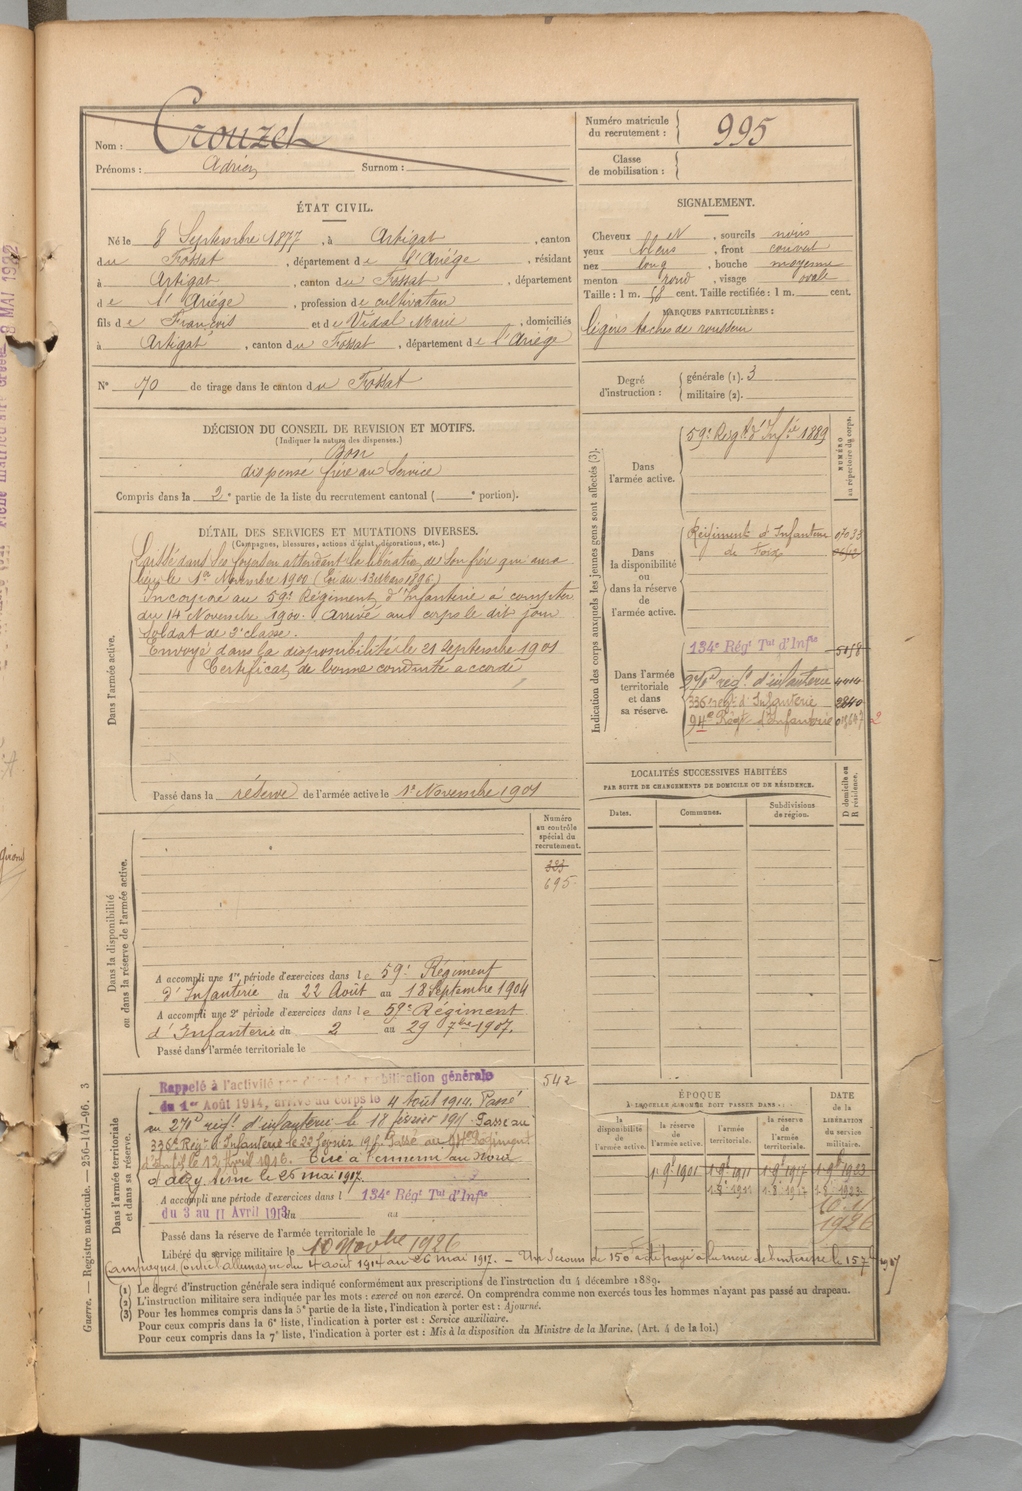 Nom : Crouzet
Prénoms : Adrien Surnom :
Numéro matricule du recrutement : 995
Classe de mobilisation :
ÉTAT CIVIL.
Né le 8 Septembre 1877, à Artigat, canton
du Fossat, département de l'Ariége, résidant
à Artigat, canton du Fossat, département
de l'Ariége, profession de cultivateur
fils de François et de Vidal Marie, domiciliés
à Artigat, canton du Fossat, département de l'Ariége
N° 70 de tirage dans le canton du Fossat
SIGNALEMENT.
Cheveux et N, sourcils noirs
yeux bleus, front couvert
nez long, bouche moyenne
menton rond, visage ovale
Taille : 1 m. 58 cent. Taille rectifiée : 1 m. cent.
MARQUES PARTICULIÈRES :
légères taches de rousseur
Degré d'instruction : générale (1). 3
militaire (2).
DÉCISION DU CONSEIL DE REVISION ET MOTIFS.
(Indiquer la nature des dispenses.)
Bon
dispensé frère au Service
Compris dans la 2e partie de la liste du recrutement cantonal ( e portion).
DÉTAIL DES SERVICES ET MUTATIONS DIVERSES.
(Campagnes, blessures, actions d'éclat, décorations, etc.)
Dans l'armée active.
Laissé dans ses foyers en attendant la libération de son frère qui aura
lieu le 1er Novembre 1900 (Loi du 13 Mars 1896)
Incorporé au 59e Régiment d'Infanterie à compter
du 14 Novembre 1900. Arrivé au corps le dit jour
Soldat de 2e classe.
Envoyé dans la disponibilité le 21 Septembre 1901
Certificat de bonne conduite accordé
Passé dans la réserve de l'armée active le 1er Novembre 1901
Indication des corps auxquels les jeunes gens sont affectés (3).
NUMÉRO au répertoire du corps.
Dans l'armée active.
59e Regt d'Infie 1889
Dans la disponibilité ou dans la réserve de l'armée active.
Régiment d'Infanterie 07033
de Foix
Dans l'armée territoriale et dans sa réserve.
134e Régt Tal d'Infie 5058
270e regt d'infanterie
336e regt d'Infanterie 2840
94e Régt d'Infanterie
LOCALITÉS SUCCESSIVES HABITÉES
PAR SUITE DE CHANGEMENTS DE DOMICILE OU DE RÉSIDENCE.
Dates. Communes. Subdivisions de région. D domicile ou R résidence.
Dans la disponibilité ou dans la réserve de l'armée active.
Numéro au contrôle spécial du recrutement.
383
695
A accompli une 1re période d'exercices dans le 59e Régiment
d'Infanterie du 22 Août au 18 Septembre 1904
A accompli une 2e période d'exercices dans le 59e Régiment
d'Infanterie du 2 au 29 7bre 1907.
Passé dans l'armée territoriale le
Dans l'armée territoriale et dans sa réserve.
542
Rappelé à l'activité par décret de mobilisation générale
du 1er Août 1914, arrivé au corps le 4 Août 1914. Passé
au 270e regt d'infanterie le 18 février 191 Passé au
336e Régt d'Infanterie le 22 février 191 Passé au 94e Régiment
d'Infie le 12 Avril 1916. Tué à l'ennemi au
le 26 mai 1917.
A accompli une période d'exercices dans l 134e Régt Tal d'Infie
du 3 au 11 Avril 1913 du au
Passé dans la réserve de l'armée territoriale le
Libéré du service militaire le 10 Novbre 1926
Campagnes contre l'Allemagne du 4 août 1914 au 26 mai 1917. — Un Secours de 150 a été payé à la mère
ÉPOQUE
À LAQUELLE L'HOMME DOIT PASSER DANS :
la disponibilité de l'armée active. la réserve de l'armée active. l'armée territoriale. la réserve de l'armée territoriale.
DATE de la LIBÉRATION du service militaire.
1 9b 1901 1 9b 1911 1 9b 1917 1 9b 1923
1.8e 1911 1.8e 1917 1.8e 1923
10 1926
(1) Le degré d'instruction générale sera indiqué conformément aux prescriptions de l'instruction du 4 décembre 1889.
(2) L'instruction militaire sera indiquée par les mots : exercé ou non exercé. On comprendra comme non exercés tous les hommes n'ayant pas passé au drapeau.
(3) Pour les hommes compris dans la 5e partie de la liste, l'indication à porter est : Ajourné.
Pour ceux compris dans la 6e liste, l'indication à porter est : Service auxiliaire.
Pour ceux compris dans la 7e liste, l'indication à porter est : Mis à la disposition du Ministre de la Marine. (Art. 4 de la loi.)
Guerre. — Registre matricule. — 256-147-96. 3